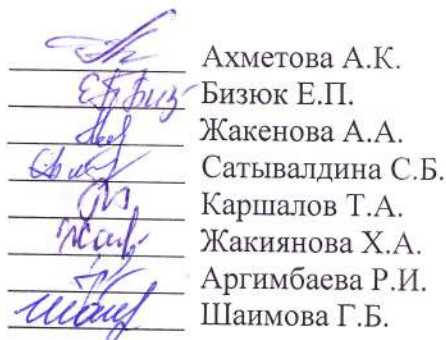 Ахметова А.К.
Бизюк Е.П.
Жакенова А.А.
Сатывалдина С.Б.
Каршалов Т.А.
Жакиянова Х.А.
Аргимбаева Р.И.
Шаимова Г.Б.